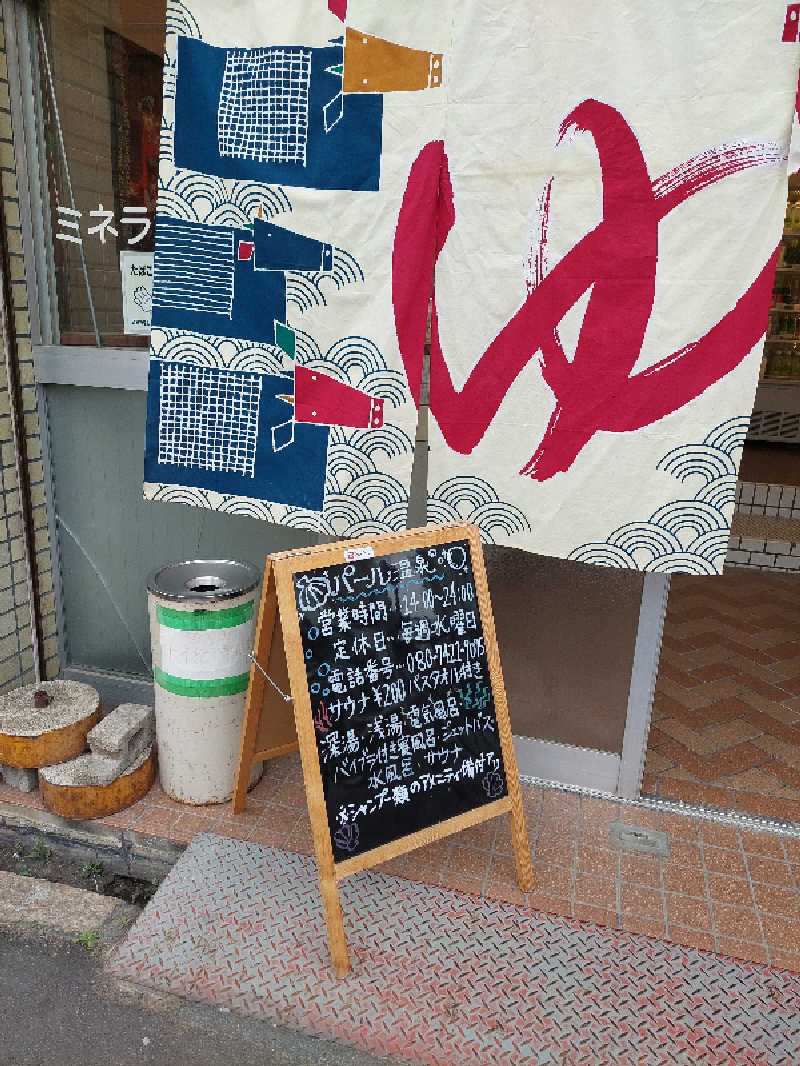 ゆ
ミネラ
たばこ
パール温泉
営業時間 14:00~24:00
定休日…毎週水曜日
電話番号…080-7422-9095
サウナ¥200 バスタオル付き
深湯・浅湯・電気風呂
バイブラ付き薬風呂・ジェットバス
水風呂 サウナ
※シャンプー類のアメニティ備付アリ